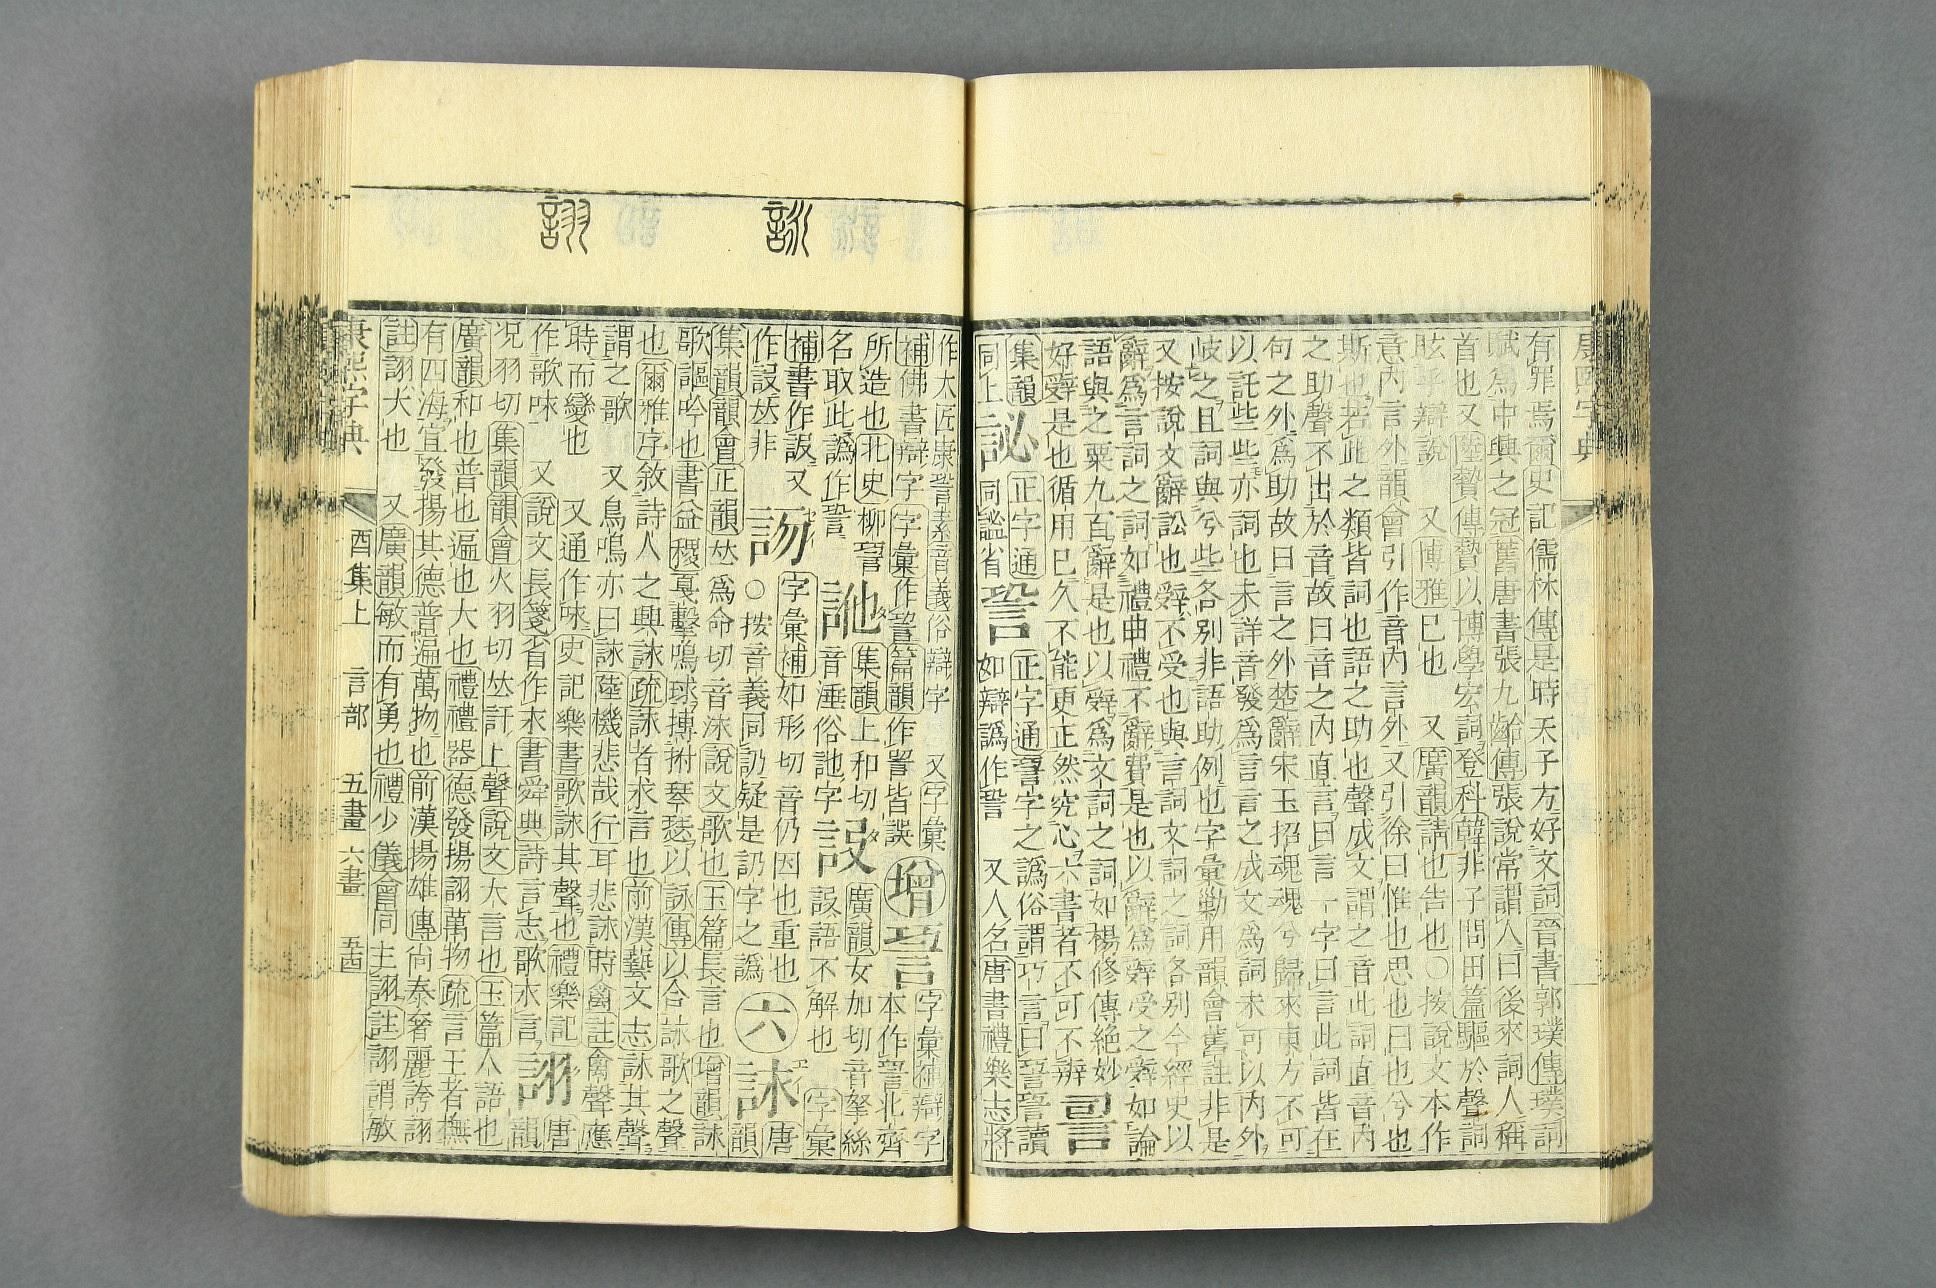 康熙字典
有罪焉爾史記儒林傳是時天子方好文詞晉書郭璞傳璞詞
賦爲中興之冠舊唐書張九齡傳張說常謂人曰後來詞人稱
首也又陸贄傳贄以博學宏詞登科韓非子問田篇驅於聲詞
眩乎辯說 又博雅已也 又廣韻請也告也○按說文本作
意內言外韻會引作音內言外又引徐曰惟也思也曰也兮也
斯也若此之類皆詞也語之助也聲成文謂之音此詞直音內
之助聲不出於音故曰音之內直言曰言一字曰言此詞皆在
句之外爲助故曰言之外楚辭宋玉招魂魂兮歸來東方不可
以託些些亦詞也未詳音發爲言言之成文爲詞未可以內外
岐之且詞與兮些各別非語助例也字彙勦用韻會舊註非是
又按說文辭訟也辤不受也與言詞文詞之詞各別今經史以
辭爲言詞之詞如禮曲禮不辭費是也以辭爲辤受之辤如論
語與之粟九百辭是也以辤爲文詞之詞如楊修傳絕妙
好辤是也循用已久不能更正然究心六書者不可不辨
集韻同上
詞
䛑
正字通同謐省
䛔
正字通䜘字之譌俗謂巧言曰䛔䛔讀
如辯譌作䛔 又人名唐書禮樂志將
作大匠康䛔素音義俗辯字 又字彙
補佛書辯字字彙作䛒篇韻作詈皆誤
增
字彙補辯字
本作䛒北齊
所造也北史柳䛒
名取此譌作䛔
訑
集韻上和切
音㴿俗訑字
䛏
廣韻女加切音拏絲
䛏語不解也 字彙
補書作䛏又
作設𠀤非
訒
字彙補如形切音仍因也重也
○按音義同訒疑是訒字之譌
六
詠
唐韻
集韻韻會正韻𠀤爲命切音泳說文歌也玉篇長言也增韻詠
歌謳吟也書益稷戛擊鳴球搏拊琴瑟以詠傳以合詠歌之聲
也爾雅序敘詩人之興詠疏詠者永言也前漢藝文志詠其聲
謂之歌 又鳥鳴亦曰詠陸機悲哉行耳悲詠時禽註禽聲應
時而變也 又通作咏史記樂書歌詠其聲也禮樂記
作歌咏 又說文長箋省作永書舜典詩言志歌永言
詡
唐韻
况羽切集韻韻會火羽切𠀤訏上聲說文大言也玉篇人語也
廣韻和也普也遍也大也禮禮器德發揚詡萬物疏言王者撫
有四海宜發揚其德普遍萬物也前漢揚雄傳尚泰奢麗誇詡
註詡大也 又廣韻敏而有勇也禮少儀會同主詡註詡謂敏
康熙字典 酉集上 言部 五畫 六畫 五十四